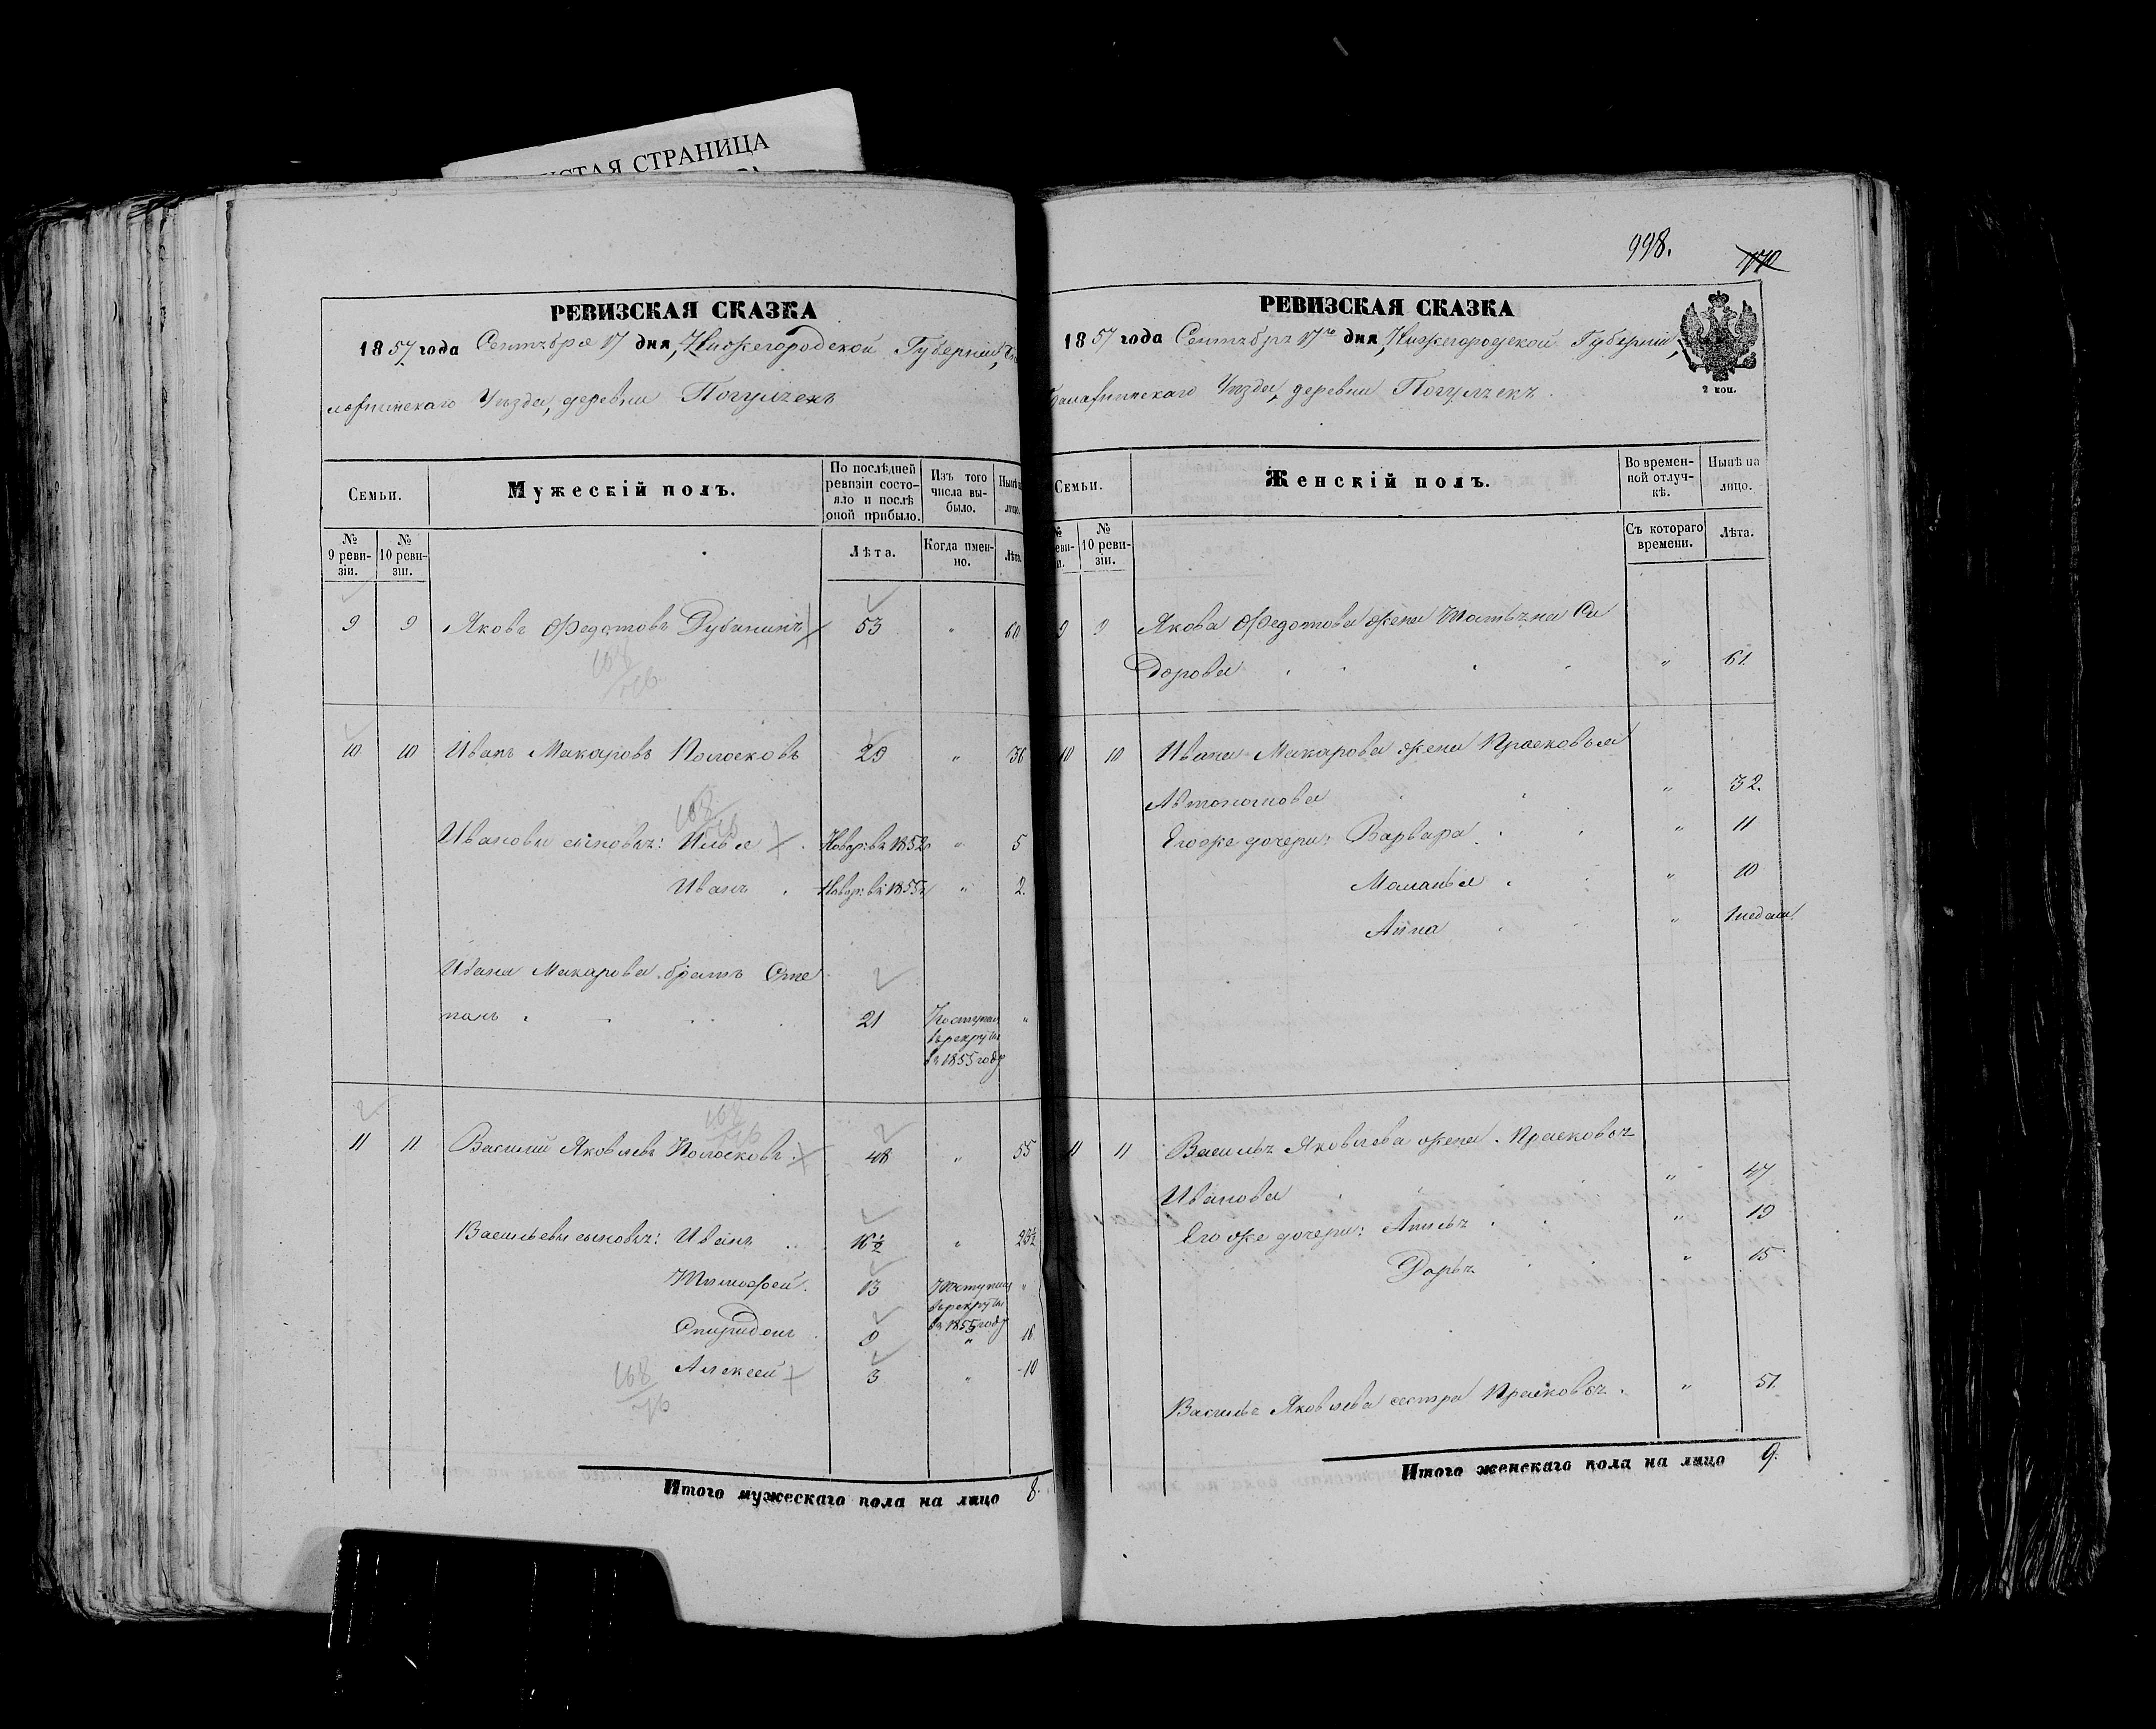 ИСТАЯ СТРАНИЦА
РЕВИЗСКАЯ СКАЗКА
1857 года Сентября 17 дня, Нижегородской Губерніи,
Уѣзда, деревни Погулѣекъ
Семьи.
Мужескій полъ.
По послѣдней ревизіи состояло и послѣ оной прибыло.
Изъ того числа выбыло.
Нынѣ на лицо.
№ 9 ревизіи.
№ 10 ревизіи.
Лѣта.
Когда именно.
Лѣта.
9 9 Яковъ Федотовъ 53 " 60
168
10 10 Иванъ Макаровъ Полосковъ 29 " 36
168
Ивановы сыновья: Илья Новор: въ 1852 " 5
Иванъ . Новор: въ 1855 " 2.
Ивана Макарова братъ Сте
панъ . . . . 21 Поступилъ "
въ рекруты
въ 1855 году
168
11 11 Василій Яковлевъ Полосковъ 48 " 55
Васильевы сыновья: Иванъ . 16½ " 23½
Тимофей . 13 Поступилъ "
въ рекруты
въ 1855 году
Спиридонъ . 9 " 16
Алексей 3 " 10
168
Итого мужескаго пола на лицо 8.
998.
РЕВИЗСКАЯ СКАЗКА
1857 года Сентября 17го дня, Нижегородской Губерніи,
Балахнинскаго Уѣзда, деревни Погулѣекъ
2 коп.
Семьи.
Женскій полъ.
Во временной отлучкѣ.
Нынѣ на лицо.
№ 10 ревизіи.
Съ котораго времени.
Лѣта.
9 9 Якова Федотова жена Татьяна Си
дорова . . . . " 61.
10 10 Ивана Макарова жена Прасковья
Автономова . . . " 32.
Его же дочери: Варвара . . " 11
Маланья . . " 10
Анна . . " 1 недели
11 11 Василья Яковлева жена Прасковья
Иванова . . . " 47
Его же дочери: . . " 19
Дарья . . " 15
Василья Яковлева сестра Прасковья . " 51.
Итого женскаго пола на лицо 9.